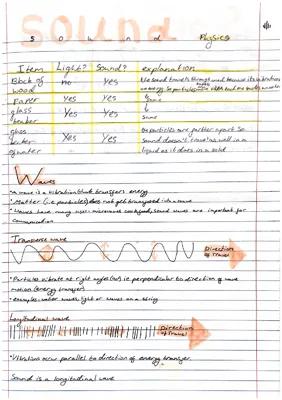 Sound
s o u n d Physics
Item Light? Sound? explanation
Block of wood no Yes the sound travels through wood because its vibrations
Paper Yes Yes
glass beaker Yes Yes Same
glass beaker of water Yes Yes particles are further apart so
sound doesn't travel as well in a
liquid as it does in a solid
Waves
•A wave is a vibration that transfers energy
•Matter (i.e particles) does not get transferred in a wave
•Waves have many uses: microwaves cook food, sound waves are important for
communication
Transverse wave
Direction of Travel
•Particles vibrate at right angles (90°) i.e perpendicular to direction of wave
motion (energy transfer)
•examples: water waves, light or waves on a string
Longitudinal wave
Direction of Travel
•Vibrations occur parallel to direction of energy transfer.
Sound is a longitudinal wave